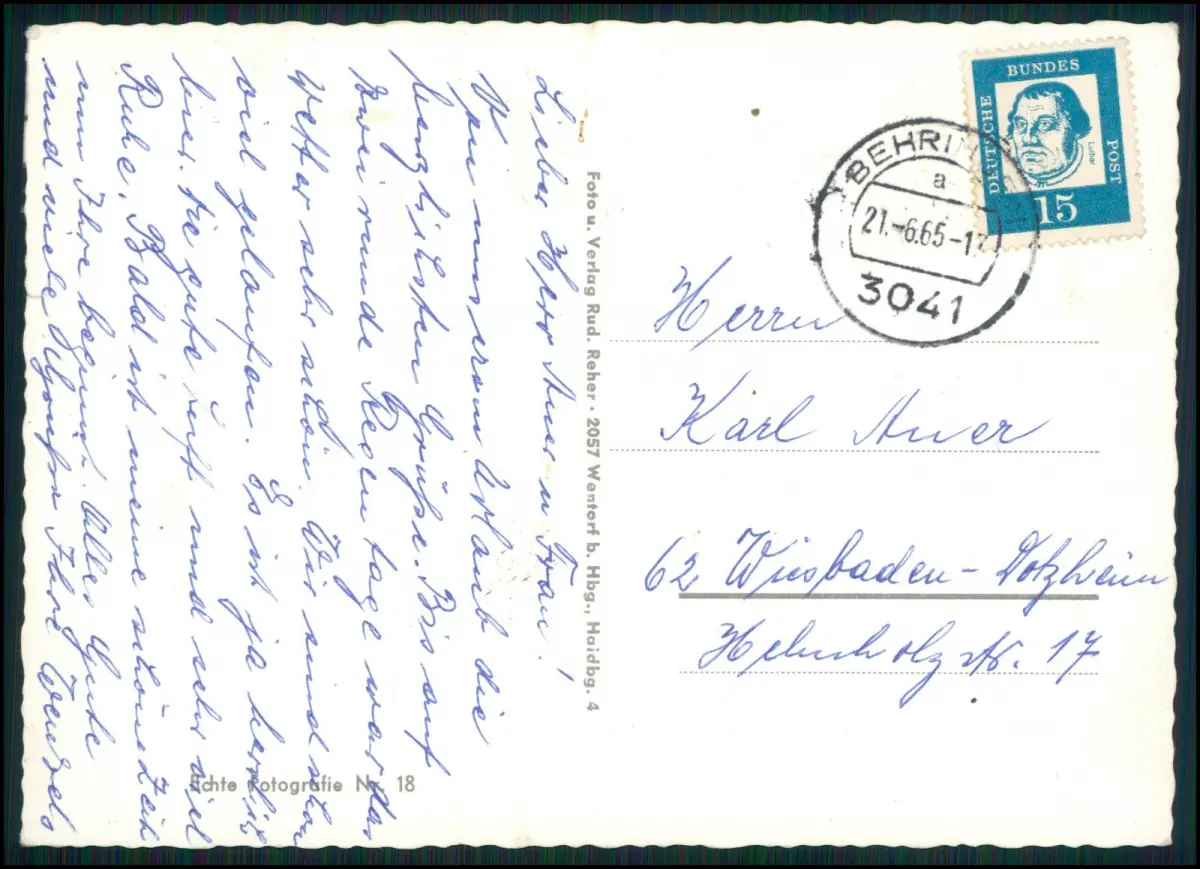 Lieber Herr Auer u. Frau!
Von unserem Urlaub die
herzlichsten Grüße. Bis auf
zwei runde Regentage war das
Wetter sehr schön. Wir sind schon
viel gelaufen. Es ist ja herrlich
hier. Die gute Luft und sehr viel
Ruhe. Bald ist meine schöne Zeit
um Ihre beginnt. Alles Gute
und viele Grüße Ihre Wenzels
Foto u. Verlag Rud. Reher · 2057 Wentorf b. Hbg., Haidbg. 4
Echte Fotografie Nr. 18
DEUTSCHE BUNDES POST
Luther
15
a
21.-6.65-17
3041
Herrn
Karl Auer
62 Wiesbaden-Dotzheim
17